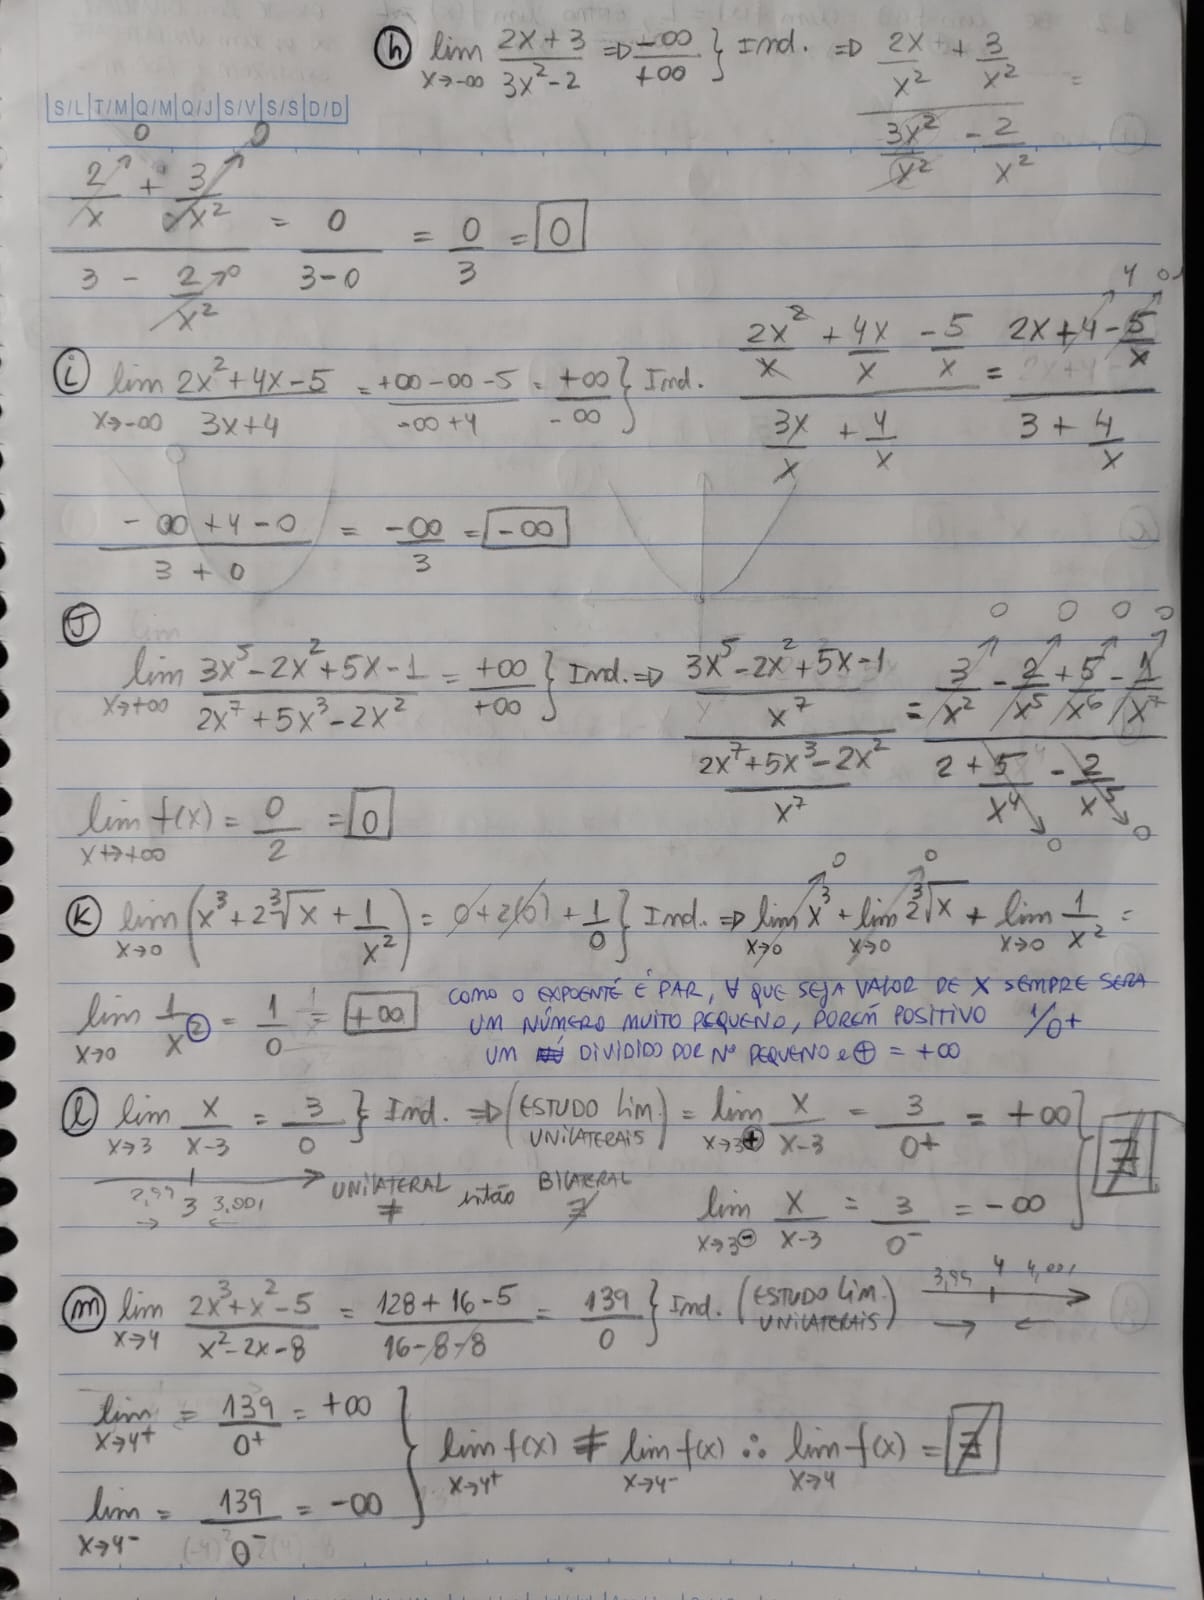 ⓗ lim x→-∞ (2x+3)/(3x²-2) ⇒ -∞/+∞ } Ind. ⇒ (2x/x² + 3/x²)/(3x²/x² - 2/x²) =
S/L|T/M|Q/M|Q/J|S/V|S/S|D/D
(2/x→0 + 3/x²→0)/(3 - 2/x²→0) = 0/(3-0) = 0/3 = 0
ⓘ lim x→-∞ (2x²+4x-5)/(3x+4) = (+∞-∞-5)/(-∞+4) = +∞/-∞ } Ind. (2x²/x + 4x/x - 5/x)/(3x/x + 4/x) = (2x+4-5/x)/(3+4/x) 4 0
(-∞+4-0)/(3+0) = -∞/3 = -∞
Ⓙ
lim x→+∞ (3x⁵-2x²+5x-1)/(2x⁷+5x³-2x²) = +∞/+∞ } Ind. ⇒ ((3x⁵-2x²+5x-1)/x⁷)/((2x⁷+5x³-2x²)/x⁷) = (3/x²→0 - 2/x⁵→0 + 5/x⁶→0 - 1/x⁷→0)/(2 + 5/x⁴→0 - 2/x⁵→0)
lim x→+∞ f(x) = 0/2 = 0
Ⓚ lim x→0 (x³ + 2∛x + 1/x²) = 0+2(0)+1/0 } Ind. ⇒ lim x→0 x³→0 + lim x→0 2∛x→0 + lim x→0 1/x² =
lim x→0 1/x² = 1/0 = +∞ COMO O EXPOENTE É PAR, ∀ QUE SEJA VALOR DE X SEMPRE SERA
UM NÚMERO MUITO PEQUENO, PORÉM POSITIVO 1/0+
UM DIVIDIDO POR Nº PEQUENO e ⊕ = +∞
ⓛ lim x→3 x/(x-3) = 3/0 } Ind. ⇒ (ESTUDO Lim. UNILATERAIS) = lim x→3⊕ x/(x-3) = 3/0+ = +∞ } ∄
2,99 → 3 3,001 ← UNILATERAL ≠ então BILATERAL ∄ lim x→3⊖ x/(x-3) = 3/0⁻ = -∞
ⓜ lim x→4 (2x³+x²-5)/(x²-2x-8) = (128+16-5)/(16-8-8) = 139/0 } Ind. (ESTUDO Lim. UNILATERAIS) 3,99 4 4,001 → ←
lim x→4+ = 139/0+ = +∞
lim x→4+ f(x) ≠ lim x→4- f(x) ∴ lim x→4 f(x) = ∄
lim x→4- = 139/0⁻ = -∞